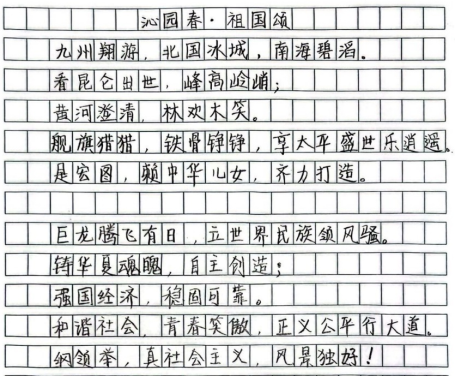 沁园春·祖国颂
九州翔游，北国冰城，南海碧滔。
看昆仑出世，峰高岭峭；
黄河澄清，林欢木笑。
舰旗猎猎，铁骨铮铮，享太平盛世乐逍遥。
是宏图，赖中华儿女，齐力打造。
巨龙腾飞有日，立世界民族领风骚。
铸华夏魂魄，自主创造；
强国经济，稳固可靠。
和谐社会，青春笑傲，正义公平行大道。
纲领举，真社会主义，风景独好！